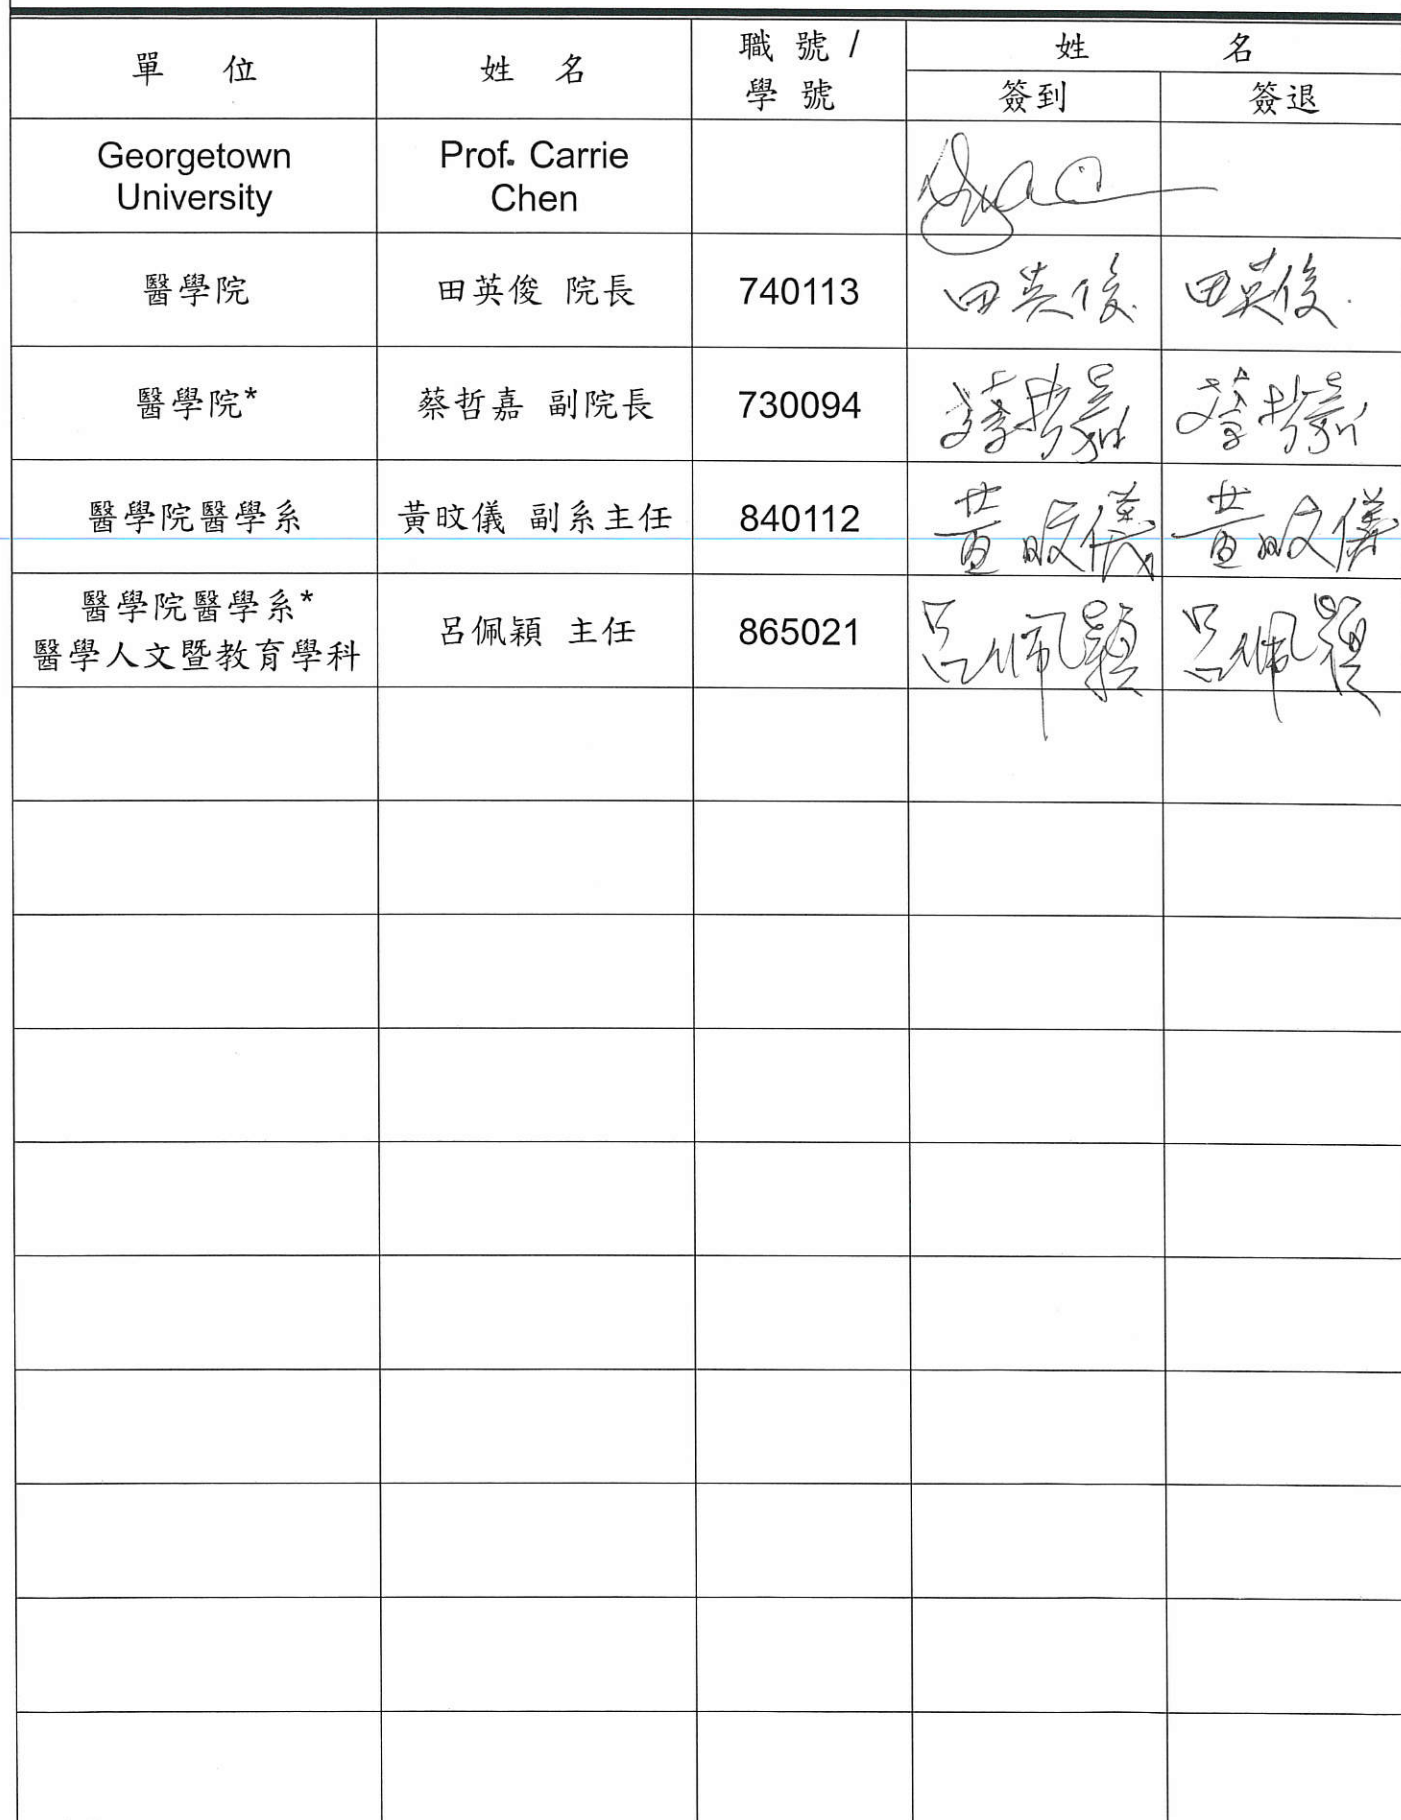 單 位 姓 名 職 號 / 學 號 姓 名
簽到 簽退
Georgetown University Prof. Carrie Chen
醫學院 田英俊 院長 740113 田英俊 田英俊
醫學院* 蔡哲嘉 副院長 730094 蔡哲嘉 蔡哲嘉
醫學院醫學系 黃旼儀 副系主任 840112 黃旼儀 黃旼儀
醫學院醫學系*
醫學人文暨教育學科 呂佩穎 主任 865021 呂佩穎 呂佩穎